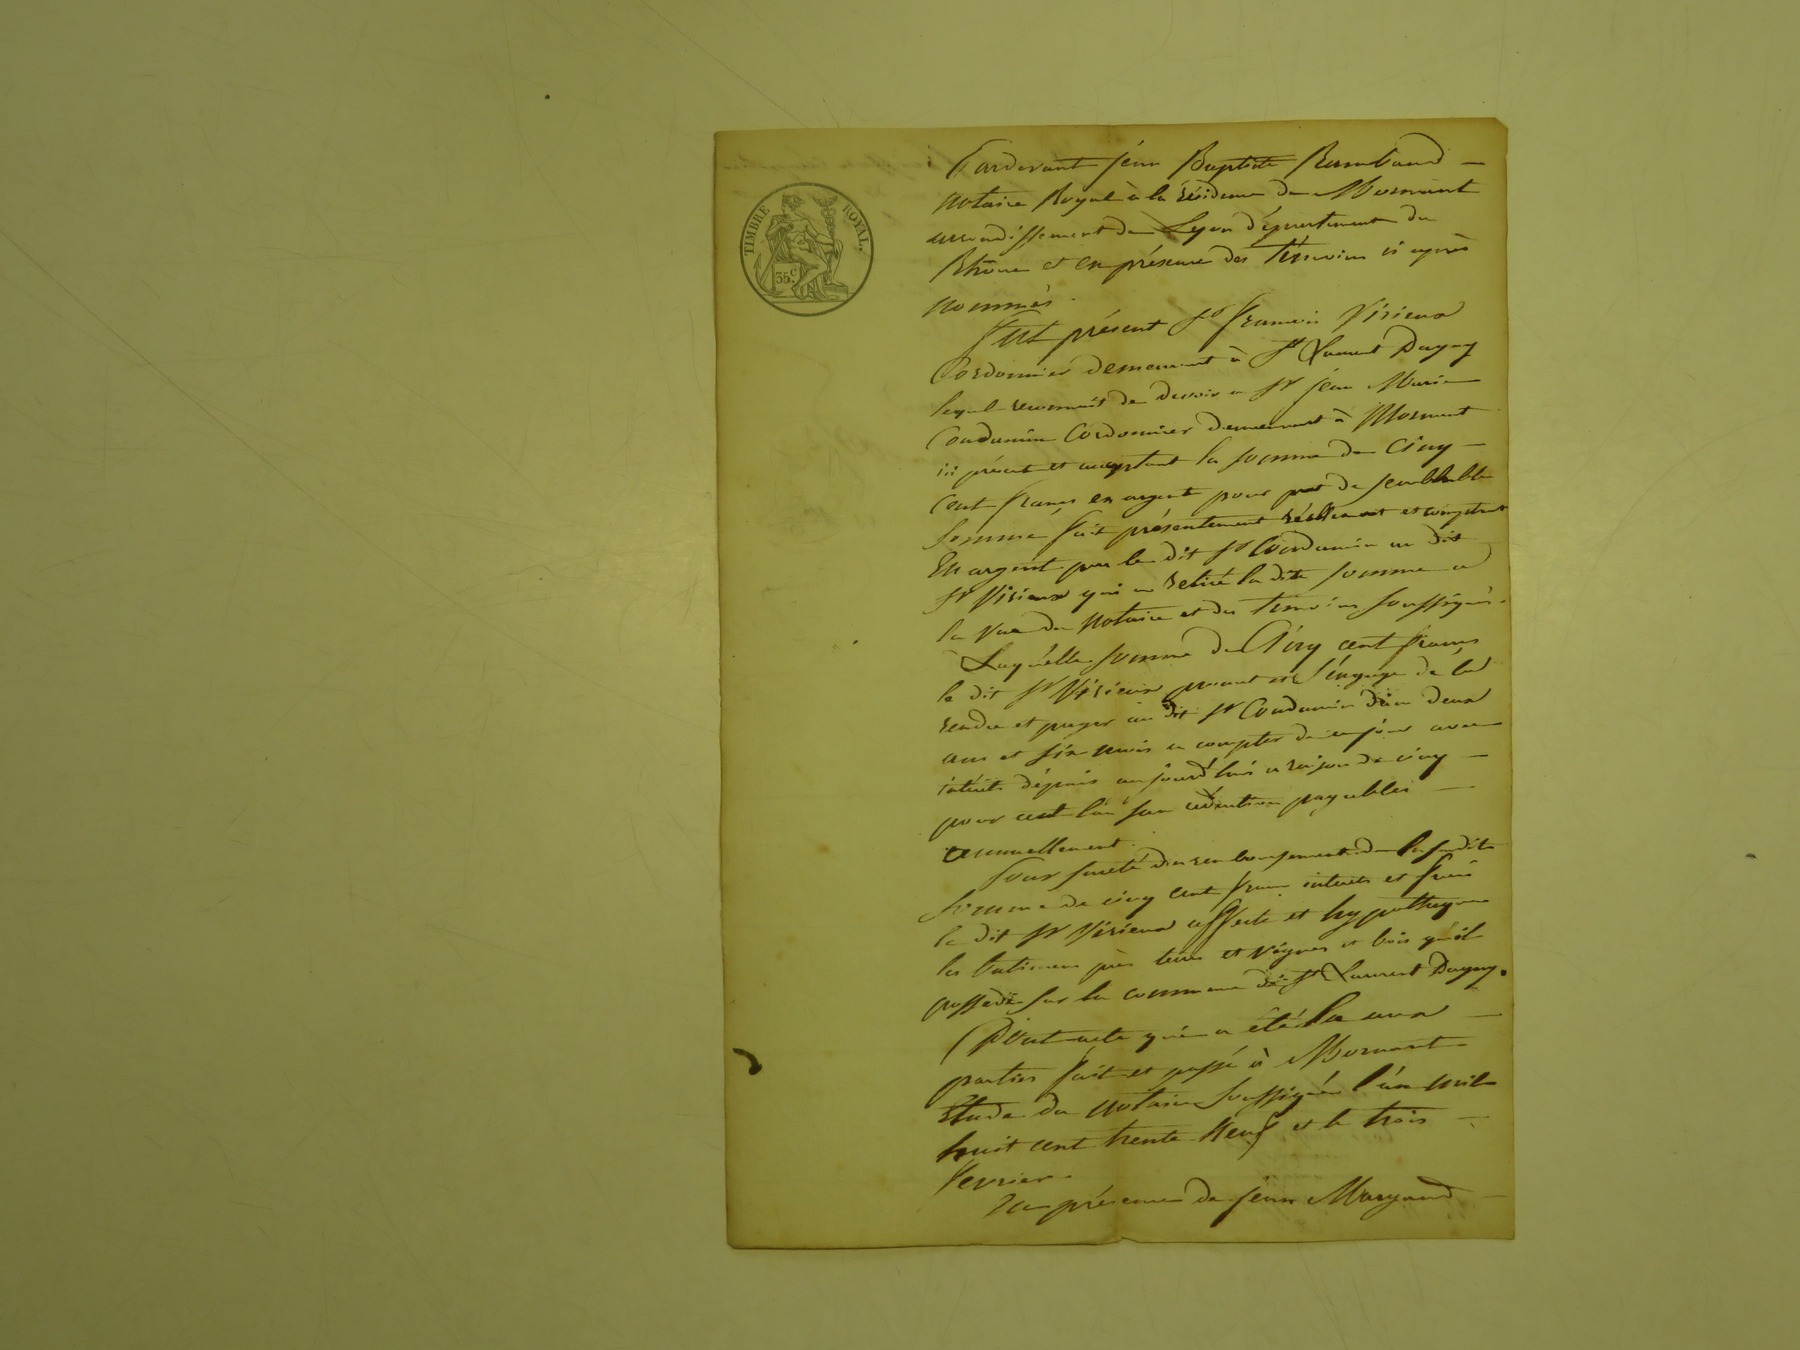 TIMBRE ROYAL.
35.c
Pardevant jéan Baptiste Rambaud
notaire Royal à la résidence de Mornant
arrondissement de Lyon départément du
Rhône et en présence des témoins ci après
nommés.
Fut présent Sr François Virieux
Cordonnier demeurant à St Laurent Dagny
lequel reconnait de devoir a Sr jéan Marie
Condamin Cordonnier demeurant à Mornant
ici présent et acceptant la somme de Cinq
cent francs en argent pour pret de semblable
somme fait présentement réellement et comptant
En argent par le dit Sr Condamin au dit
Sr Virieux qui a retiré la dite somme a
la vue du notaire et des témoins soussignés.
Laquelle somme de Cinq cent francs
le dit Sr Virieux promet et s'éngage de la
rendre et payer au dit Sr Condamin dans deux
ans et six mois a compter de ce jour avec
intérêts dépuis aujourd'hui a raison de cinq
pour cent l'an sans rédaction payables
annuellement.
Pour sureté du remboursement de la susdite
somme de cinq cent francs intérets et frais
le dit Sr Virieux affecte et hypothèque
les batimens près terres et vignes et bois qu'il
possede sur la commune de St Laurent Dagny.
Dont acte qui a été lu aux
parties fait et passé à Mornant
Etude du notaire soussigné l'an mil
huit cent trente neuf et le trois
fevrier.
En présence de jean